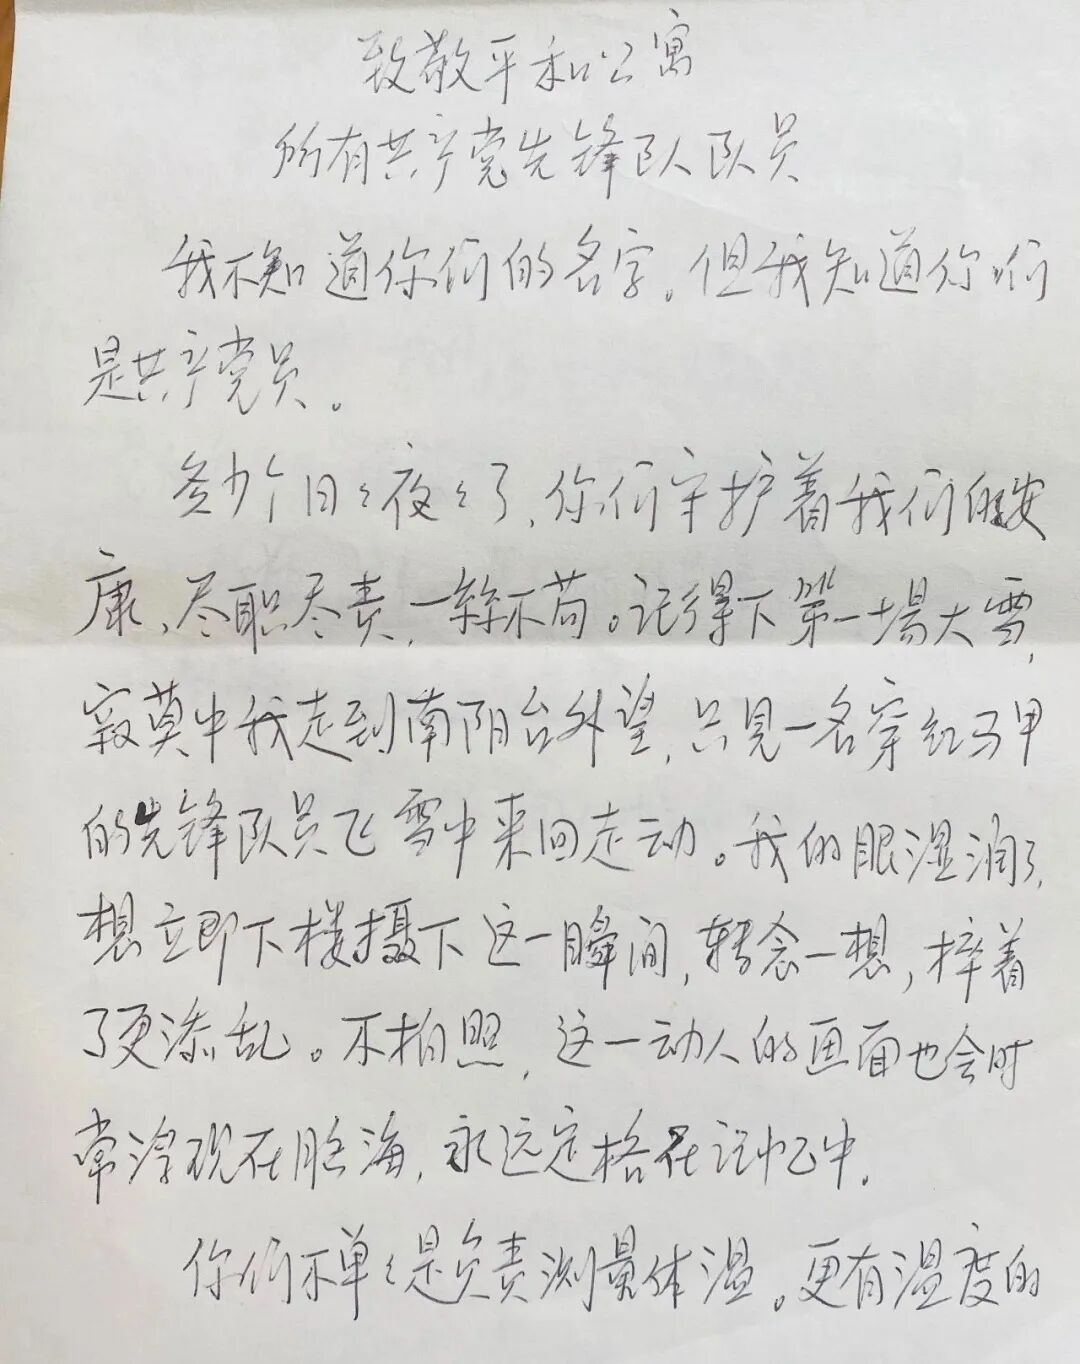 致敬平和公寓
所有共产党先锋队队员
我不知道你们的名字。但我知道你们
是共产党员。
多少个日日夜夜了，你们守护着我们的安
康，尽职尽责，一丝不苟。记得下第一场大雪，
寂莫中我走到南阳台外望，只见一名穿红马甲
的先锋队员飞雪中来回走动。我的眼湿润了，
想立即下楼摄下这一瞬间，转念一想，摔着
了更添乱。不拍照，这一动人的画面也会时
常浮现在脑海，永远定格在记忆中。
你们不单单是负责测量体温。更有温度的